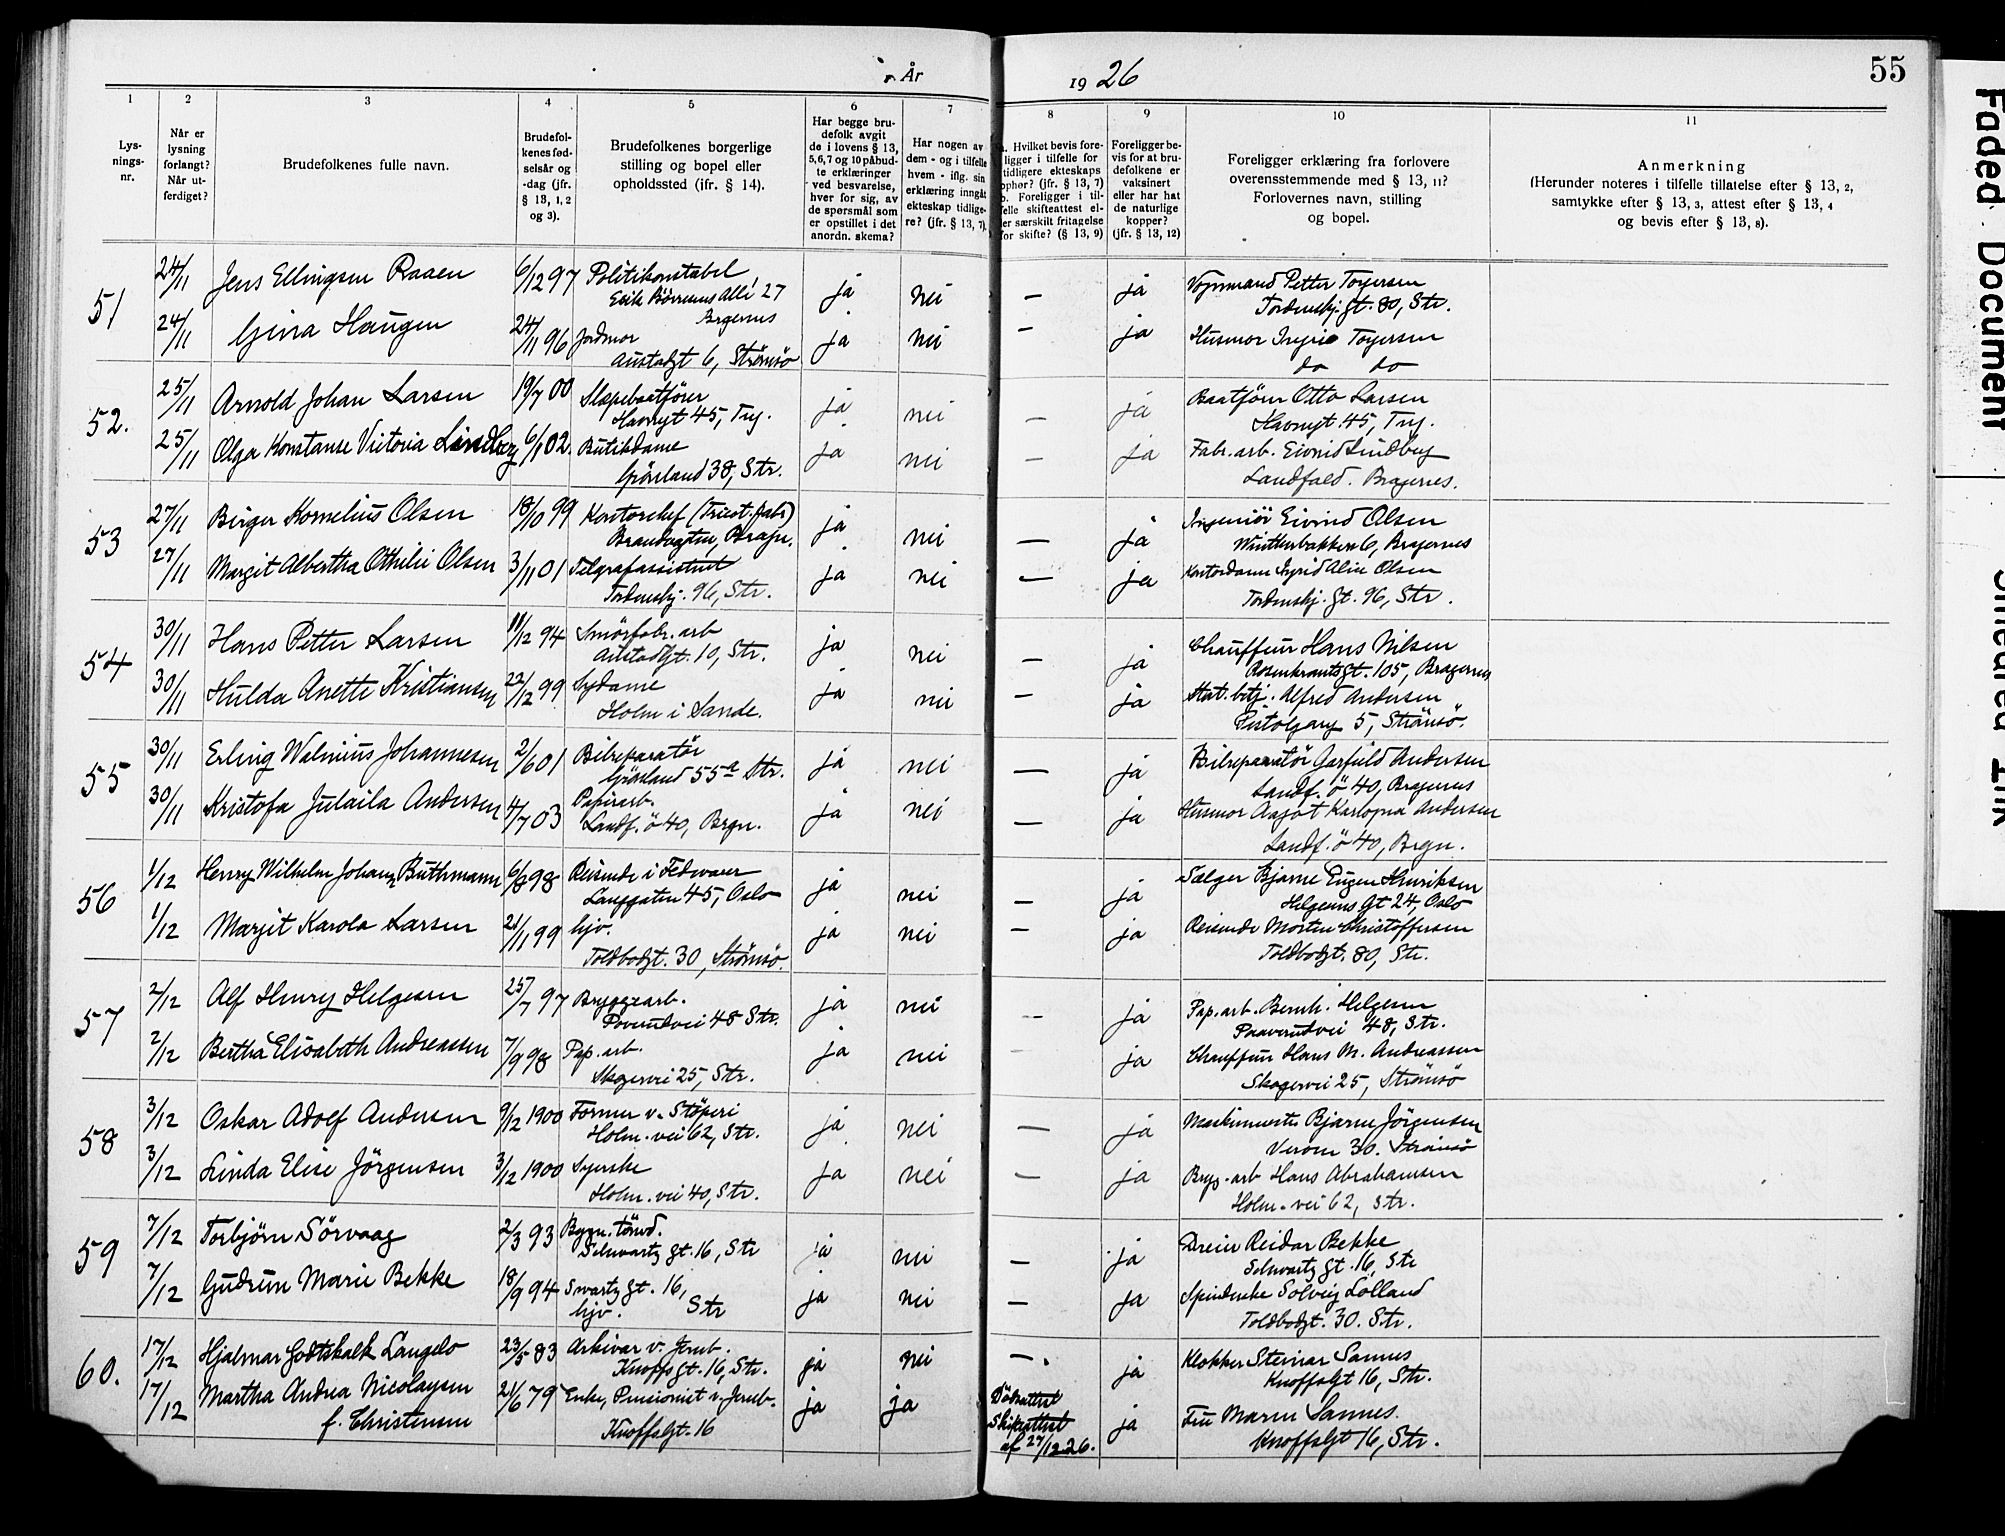 År 1926
55
1 2 3 4 5 6 7 8 9 10 11
Lysnings-nr.
Når er lysning forlangt? Når utferdiget?
Brudefolkenes fulle navn.
Brudefolkenes fødselsår og -dag (jfr. § 13, 1, 2 og 3).
Brudefolkenes borgerlige stilling og bopel eller opholdssted (ifr. § 14).
Har begge brudefolk avgit de i lovens § 13, 5,6,7 og 10 påbudte erklæringer ved besvarelse, hver for sig, av de spørsmål som er opstillet i det anordn. skema?
Har nogen av dem - og i tilfelle hvem - iflg. sin erklæring inngått ekteskap tidligere? (jfr. § 13, 7).
a. Hvilket bevis foreligger i tilfelle for tidligere ekteskaps ophør? (jfr. § 13, 7) b. Foreligger i tilfelle skifteattest eller særskilt fritagelse for skifte? (§ 13, 9)
Foreligger bevis for at brudefolkene er vaksinert eller har hat de naturlige kopper? (jfr. § 13, 12)
Foreligger erklæring fra forlovere overensstemmende med § 13, 11? Forlovernes navn, stilling og bopel.
Anmerkning (Herunder noteres i tilfelle tillatelse efter § 13, 2, samtykke efter § 13, 3, attest efter § 13, 4 og bevis efter § 13, 8).
51 24/11 Jens Ellingsen Raaen 6/12 97 Politikonstabel ja nei — ja Vognmand Petter Torgersen
Erik Börresens Allé 27 Bragernes Tordenskj. gt. 80, Str.
24/11 Gina Haugen 24/11 96 Jordmor ja nei — ja Husmor Ingrid Torgersen
Austadgt 6, Strömsö do do
52. 25/11 Arnold Johan Larsen 19/7 00 Slæpebaatförer ja nei — ja Baatförer Otto Larsen
Havnegt 45, Tng. Havnegt. 45, Tng.
25/11 Olga Konstanse Victoria Lindberg 6/1 02. Butikdame ja nei — ja Fabr. arb. Eivind Lindberg
Grönland 38, Str. Landfald. Bragernes.
53 27/11 Birger Kornelius Olsen 18/10 99 Kontorchef (Tricot. fabr) ja nei — ja Ingeniör Eivind Olsen
Brandvagten, Bragn. Wintherbakken 6, Bragernes
27/11 Margit Albertha Othilie Olsen 3/11 01 Telgrafassistent ja nei — ja Kontordame Sigrid Alise Olsen
Tordenskj. 96, Str. Tordenskj. gt. 96, Str.
54 30/11 Hans Petter Larsen 11/12 94 Smörfabr. arb ja nei — ja Chauffeur Hans Nilsen
Austadgt. 10, Str. Rosenkrantsgt. 105, Bragernes
30/11 Hulda Anette Kristiansen 22/12 99 Sydame ja nei — ja Stat. betj. Alfred Andersen
Holm i Sande. Pistolgang 5, Strömsö.
55 30/11 Erling Walmius Johannesen 2/6 01 Bilreparatör ja nei — ja Bilreparatör Garfield Andersen
Grönland 55 a Str. Landf. ö 40, Bragernes
30/11 Kristofa Julaila Andersen 4/7 03 Papirarb. ja nei — ja Husmor Aagot Andersen
Landf. ö 40, Brgn. Landf. ö 40, Brgn.
56 1/12 Henry Wilhelm Johann Buthmann 6/8 98 Reisende i Fedvarer ja nei — ja Sælger Bjarne Eugen Henriksen
Langgaten 45, Oslo Helgesens gt 24, Oslo
1/12 Margit Karola Larsen 21/11 99 hjv. ja nei — ja Reisende Morten Christoffersen
Toldbodgt. 30, Strömsö. Toldbodgt. 80, Str.
57 2/12 Alf Henry Helgesen 25/7 97 Bryggearb. ja nei — ja Pap. arb. Bernh. Helgesen
Poverudvei 48 Str. Paaverudvei 48, Str.
2/12 Bertha Elisabeth Andreassen 7/9 98 Pap. arb. ja nei — ja Chauffeur Hans M. Andreassen
Skogervei 25, Str. Skogervei 25, Strömsö
58 3/12 Oskar Adolf Andersen 9/12 1900 Former v. Stöperi ja nei — ja Maskinmester Bjarne Jörgensen
Holm. vei 62, Str. 30. Strömsö
3/12 Linda Elise Jörgensen 3/12 1900 Syerske ja nei — ja Bryg. arb Hans Abrahamsen
Holm. vei 40, Str. Holm. vei 62, Str.
59 7/12 Torbjörn Sörvaag 2/3 93 Bygn. tömd. ja nei — ja Dreier Reidar Bekke
Schwartz gt. 16, Str Schwartz gt. 16, Str
7/12 Gudrun Marie Bekke 18/9 94 Swartz gt. 16, ja nei — ja Spinderske Solveig Lolland
hjv. Str Toldbodgt. 30. Str.
60. 17/12 Hjalmar Godtskalk Langelo 23/5 83 Arkivar v. Jernb. ja nei — ja Klokker Steinar Sannes
Knoffs gt. 16, Str. Knoffsgt 16, Str.
17/12 Martha Andrea Nicolaysen 21/6 79 Enke, Pensionist v. Jernb. ja ja Dödsattest ja Fru Maren Sannes.
f. Christensen Knoffsgt. 16 Skifteattest af 27/12 26. Knoffsgt 16, Str.
Faded Document